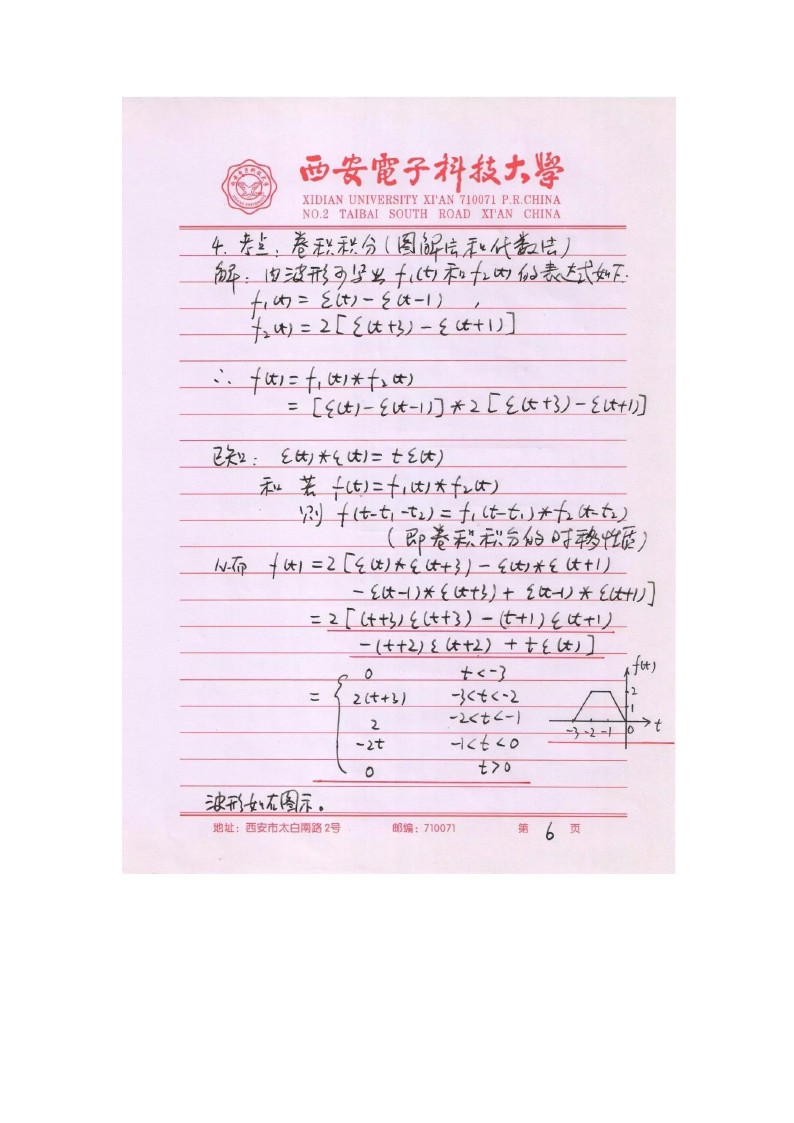 西安電子科技大學
XIDIAN UNIVERSITY XI'AN 710071 P.R.CHINA
NO.2 TAIBAI SOUTH ROAD XI'AN CHINA
4. 考点：卷积积分(图解法和代数法)
解：由波形可写出 f₁(t)和f₂(t)的表达式如下:
f₁(t) = ε(t) - ε(t-1) ,
f₂(t) = 2[ε(t+3) - ε(t+1)]
∴ f(t) = f₁(t)*f₂(t)
= [ε(t)-ε(t-1)]*2[ε(t+3)-ε(t+1)]
已知: ε(t)*ε(t) = tε(t)
和 若 f(t)=f₁(t)*f₂(t)
则 f(t-t₁-t₂) = f₁(t-t₁)*f₂(t-t₂)
(即卷积积分的时移性质)
从而 f(t) = 2[ε(t)*ε(t+3) - ε(t)*ε(t+1)
-ε(t-1)*ε(t+3) + ε(t-1)*ε(t+1)]
= 2[(t+3)ε(t+3) - (t+1)ε(t+1)
-(t+2)ε(t+2) + tε(t)]
= { 0 t<-3
2(t+3) -3<t<-2
2 -2<t<-1
-2t -1<t<0
0 t>0
f(t)
2
1
-3 -2 -1 0 t
波形如右图示。
地址：西安市太白南路2号 邮编：710071 第 6 页